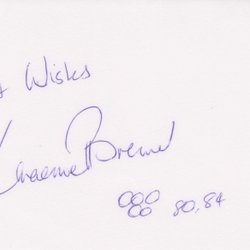 t Wishes
Graeme Brewer
80, 84